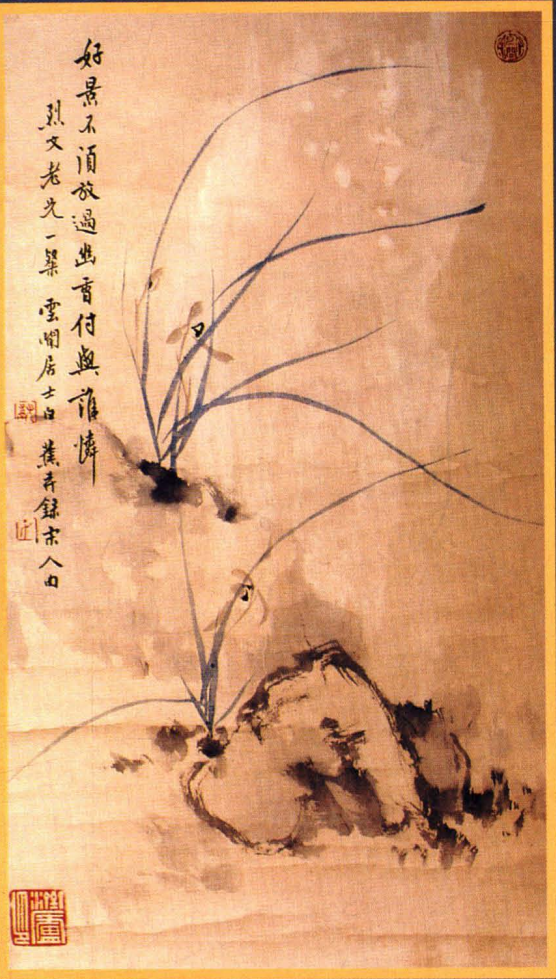 好景不須放過幽香付與誰憐
烈文老先一粲 雲間居士白蕉并錄宋人句